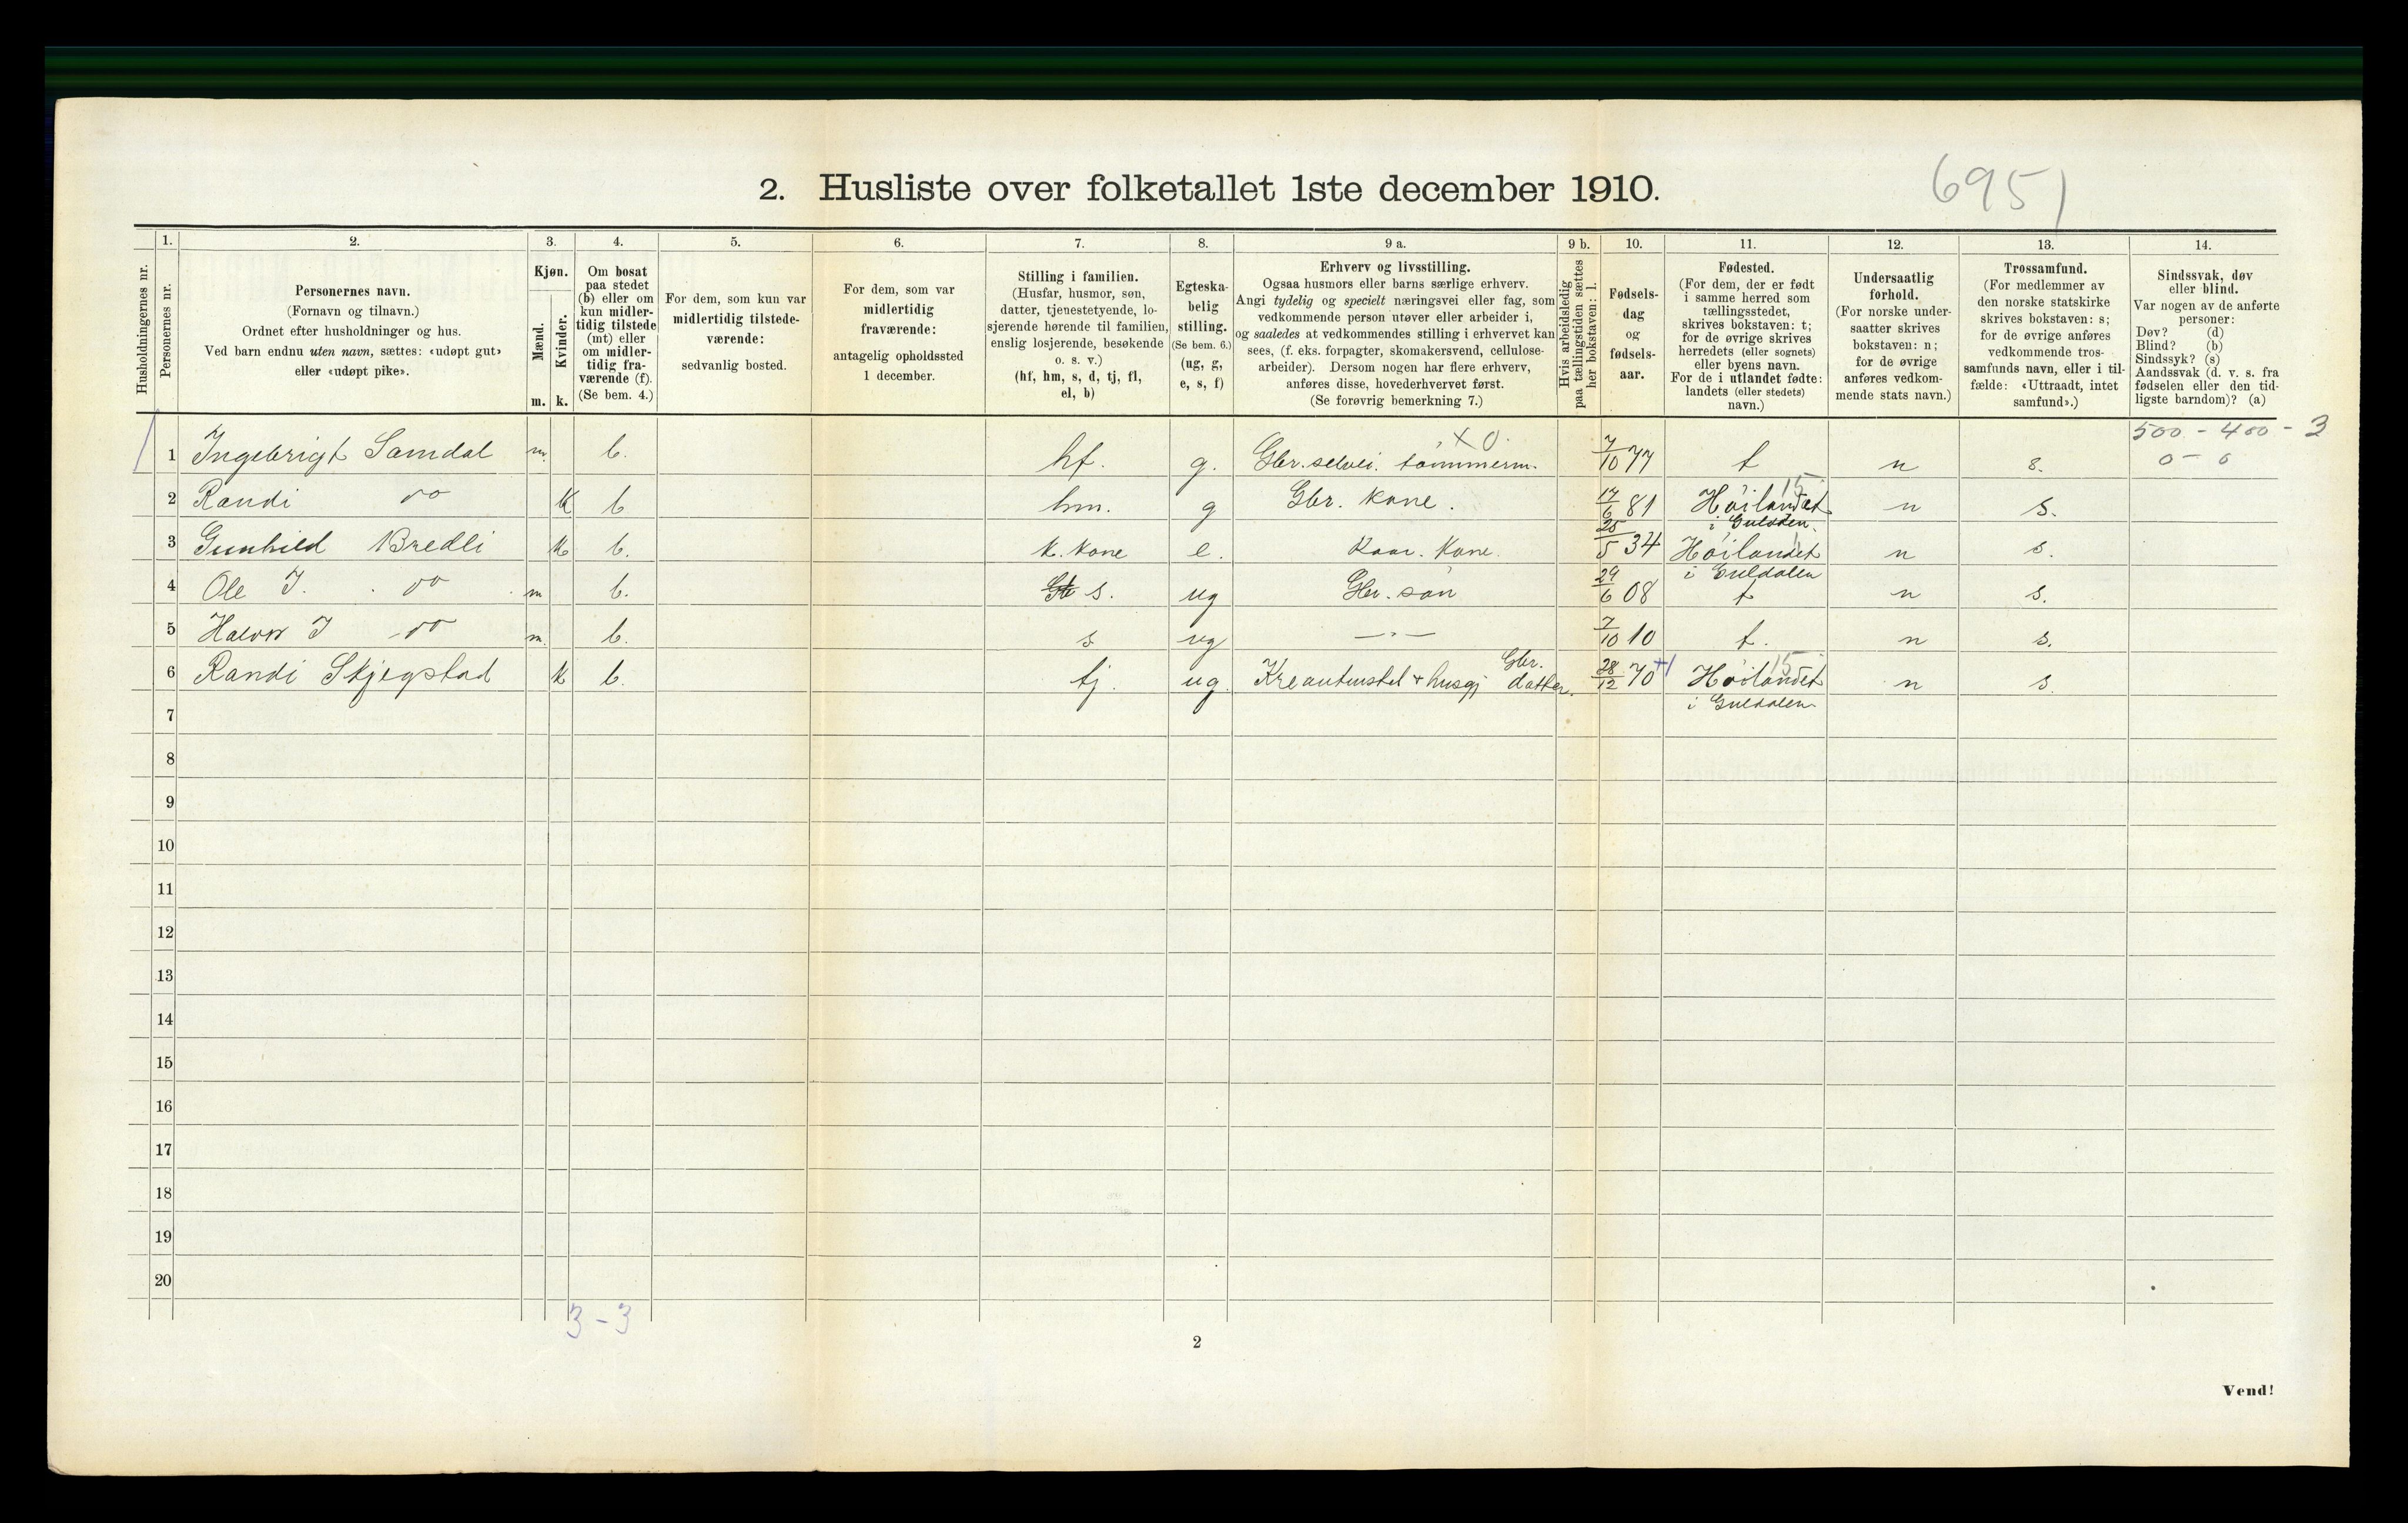 2. Husliste over folketallet 1ste december 1910.
6951
1. 2. 3. 4. 5. 6. 7. 8. 9 a. 9 b. 10. 11. 12. 13. 14.
Husholdningernes nr.
Personernes nr.
Personernes navn.
(Fornavn og tilnavn.)
Ordnet efter husholdninger og hus.
Ved barn endnu uten navn, sættes: «udøpt gut»
eller «udøpt pike».
Kjøn.
Mænd.
Kvinder.
m. k.
Om bosat
paa stedet
(b) eller om
kun midler-
tidig tilstede
(mt) eller
om midler-
tidig fra-
værende (f).
(Se bem. 4.)
For dem, som kun var
midlertidig tilstede-
værende:
sedvanlig bosted.
For dem, som var
midlertidig
fraværende:
antagelig opholdssted
1 december.
Stilling i familien.
(Husfar, husmor, søn,
datter, tjenestetyende, lo-
sjerende hørende til familien,
enslig losjerende, besøkende
o. s. v.)
(hf, hm, s, d, tj, fl,
el, b)
Egteska-
belig
stilling.
(Se bem. 6.)
(ug, g,
e, s, f)
Erhverv og livsstilling.
Ogsaa husmors eller barns særlige erhverv.
Angi tydelig og specielt næringsvei eller fag, som
vedkommende person utøver eller arbeider i,
og saaledes at vedkommendes stilling i erhvervet kan
sees, (f. eks. forpagter, skomakersvend, cellulose-
arbeider). Dersom nogen har flere erhverv,
anføres disse, hovederhvervet først.
(Se forøvrig bemerkning 7.)
Hvis arbeidsledig
paa tællingstiden sættes
her bokstaven: l.
Fødsels-
dag
og
fødsels-
aar.
Fødested.
(For dem, der er født
i samme herred som
tællingsstedet,
skrives bokstaven: t;
for de øvrige skrives
herredets (eller sognets)
eller byens navn.
For de i utlandet fødte:
landets (eller stedets)
navn.)
Undersaatlig
forhold.
(For norske under-
saatter skrives
bokstaven: n;
for de øvrige
anføres vedkom-
mende stats navn.)
Trossamfund.
(For medlemmer av
den norske statskirke
skrives bokstaven: s;
for de øvrige anføres
vedkommende tros-
samfunds navn, eller i til-
fælde: «Uttraadt, intet
samfund».)
Sindssvak, døv
eller blind.
Var nogen av de anførte
personer:
Døv? (d)
Blind? (b)
Sindssyk? (s)
Aandssvak (d. v. s. fra
fødselen eller den tid-
ligste barndom)? (a)
500 - 400 - 3
0 - 0
X 0.
1 Ingebrigt Samdal m. b. hf. g. Gbr. selvei. tømmerm. 7/10 77 t n s.
2 Randi do k b hm. g Gbr. kone. 17/6 81 Høilandet n s.
15
i Guldalen.
3 Gunhild Bredli k b. k. kone e. Kaar. kone. 25/5 34 Høilandet n s.
i Guldalen
4 Ole I. do m b. s. ug Gbr. søn 29/6 08 t n s.
5 Halvor I do m. b. s ug —"— 7/10 10 t. n s.
6 Randi Skjegstad k b. tj. ug. Kreaturstel + husgj Gbr. datter. 28/12 70 +1 Høilandet n s.
15
i Guldalen
7
8
9
10
11
12
13
14
15
16
17
18
19
20
3 - 3
2
Vend!